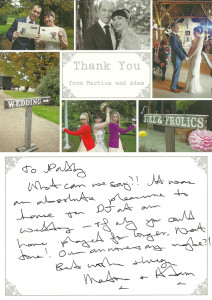 Thank You
from Martina and Adam
WEDDING
FIZZ & FROLICS
To Patsy
What can we say!! It was
an absolute pleasure to
have you DJ at our
wedding - if only you could
have played for longer. Next
time! Our anniversary maybe?!
Best wishes always
Martina + Adam